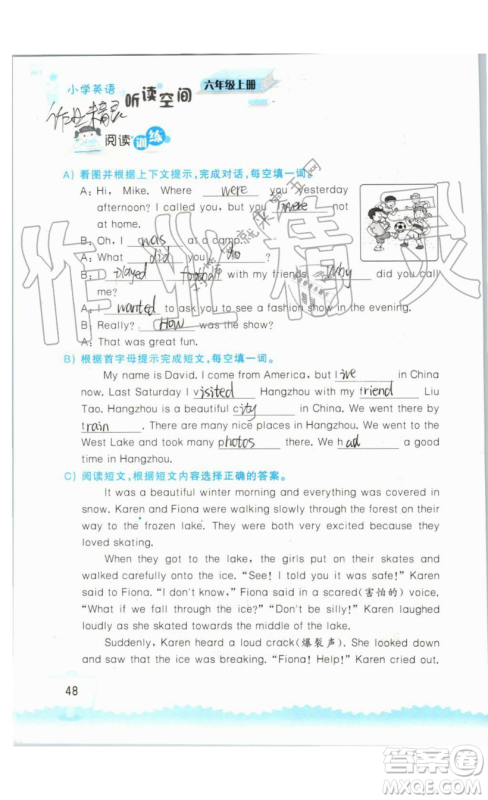 小学英语
听读空间
六年级上册
作业精灵
阅读训练
A) 看图并根据上下文提示,完成对话,每空填一词。
A: Hi, Mike. Where were you yesterday
afternoon? I called you, but you were not
at home.
B: Oh, I was at a camp.
A: What did you do?
B: I played football with my friends. Why did you call
me?
A: I wanted to ask you to see a fashion show in the evening.
B: Really? How was the show?
A: That was great fun.
B) 根据首字母提示完成短文,每空填一词。
My name is David. I come from America, but I live in China
now. Last Saturday I visited Hangzhou with my friend Liu
Tao. Hangzhou is a beautiful city in China. We went there by
train. There are many nice places in Hangzhou. We went to the
West Lake and took many photos there. We had a good time.
C) 阅读短文,根据短文内容选择正确的答案。
It was a beautiful winter morning and everything was covered in
snow. Karen and Fiona were walking through the forest on their
way to the frozen lake. They were both very excited because they
loved skating.
When they got to the lake, the girls put on their skates and
walked carefully onto the ice. "See! I told you it was safe!" Karen
said to Fiona. "I don't know," Fiona said in a scared(害怕的) voice.
"What if we fall through the ice?" "Don't be silly!" Karen laughed
loudly and started to skate around the lake.
Suddenly, Karen heard a loud crack(爆裂声) and realized that
the ice was breaking. "Fiona! Help!" Karen cried out.
48
作业精灵
答案圈
MXQE.COM